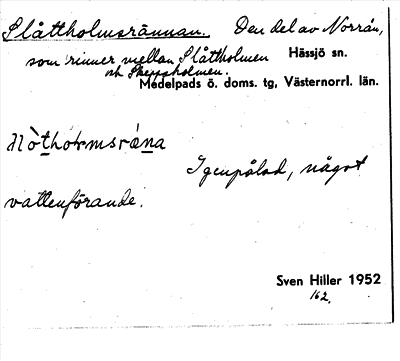 Slåttholmsrännan. Den del av Norrån,
som rinner mellan Slåttholmen Hässjö sn.
och Skeppsholmen.
Medelpads ö. doms. tg, Västernorrl. län.
Igenpålad, något
vattenförande.
Sven Hiller 1952
162.